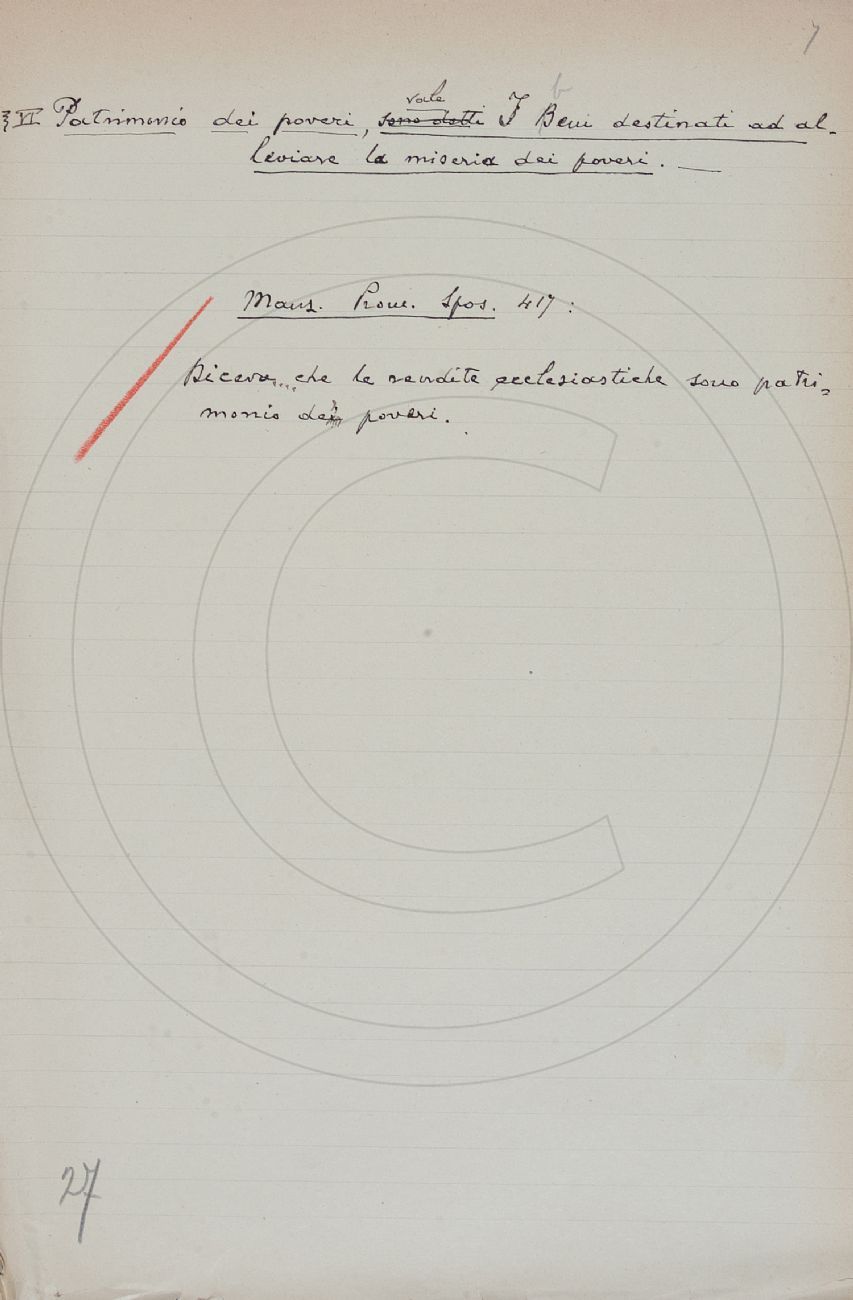 7
§ VI Patrimonio dei poveri, vale sono detti I Beni destinati ad al-
leviare la miseria dei poveri. —
Manz. Prom. Spos. 417:
Diceva... che le rendite ecclesiastiche sono patri=
monio dei poveri.
27